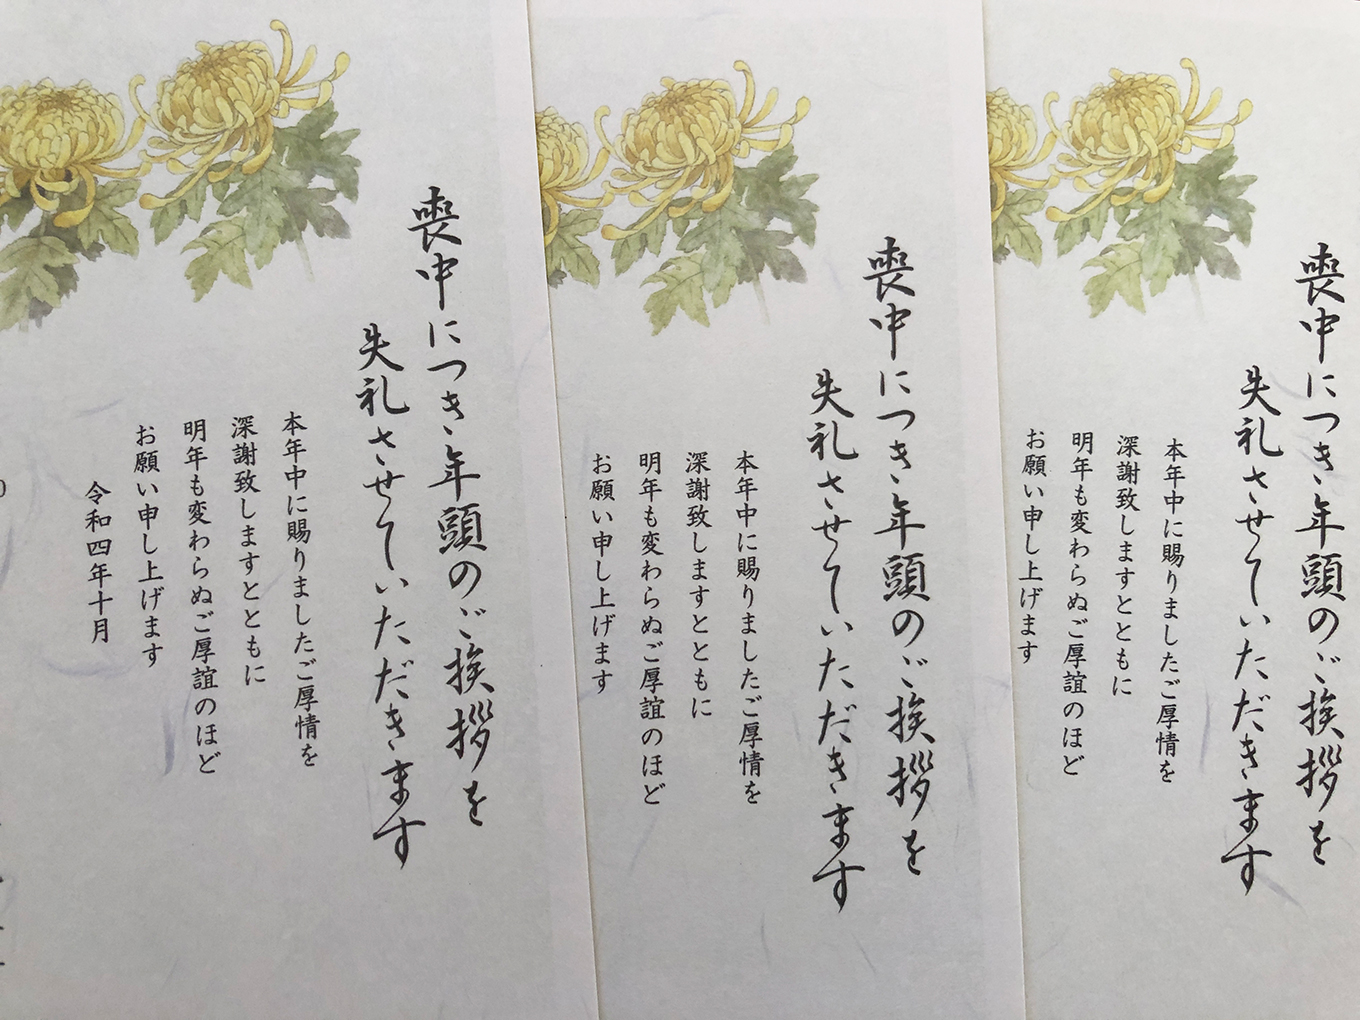 喪中につき年頭のご挨拶を
失礼させていただきます
本年中に賜りましたご厚情を
深謝致しますとともに
明年も変わらぬご厚誼のほど
お願い申し上げます
喪中につき年頭のご挨拶を
失礼させていただきます
本年中に賜りましたご厚情を
深謝致しますとともに
明年も変わらぬご厚誼のほど
お願い申し上げます
喪中につき年頭のご挨拶を
失礼させていただきます
本年中に賜りましたご厚情を
深謝致しますとともに
明年も変わらぬご厚誼のほど
お願い申し上げます
令和四年十月